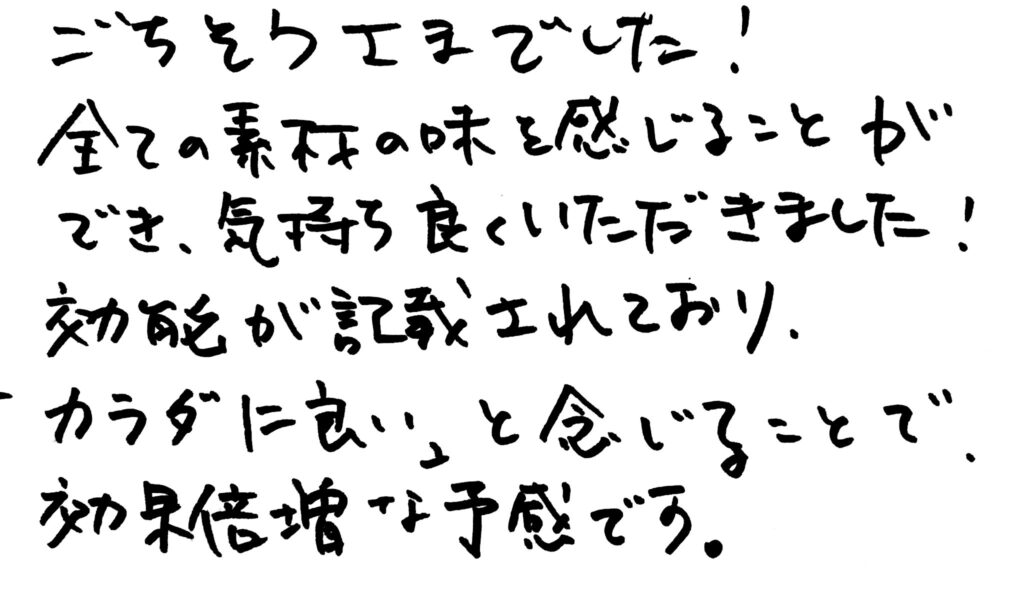 ごちそうさまでした!
全ての素材の味を感じることが
でき、気持ち良くいただきました!
効能が記載されており、
「カラダに良い」と念じることで、
効果倍増な予感です。